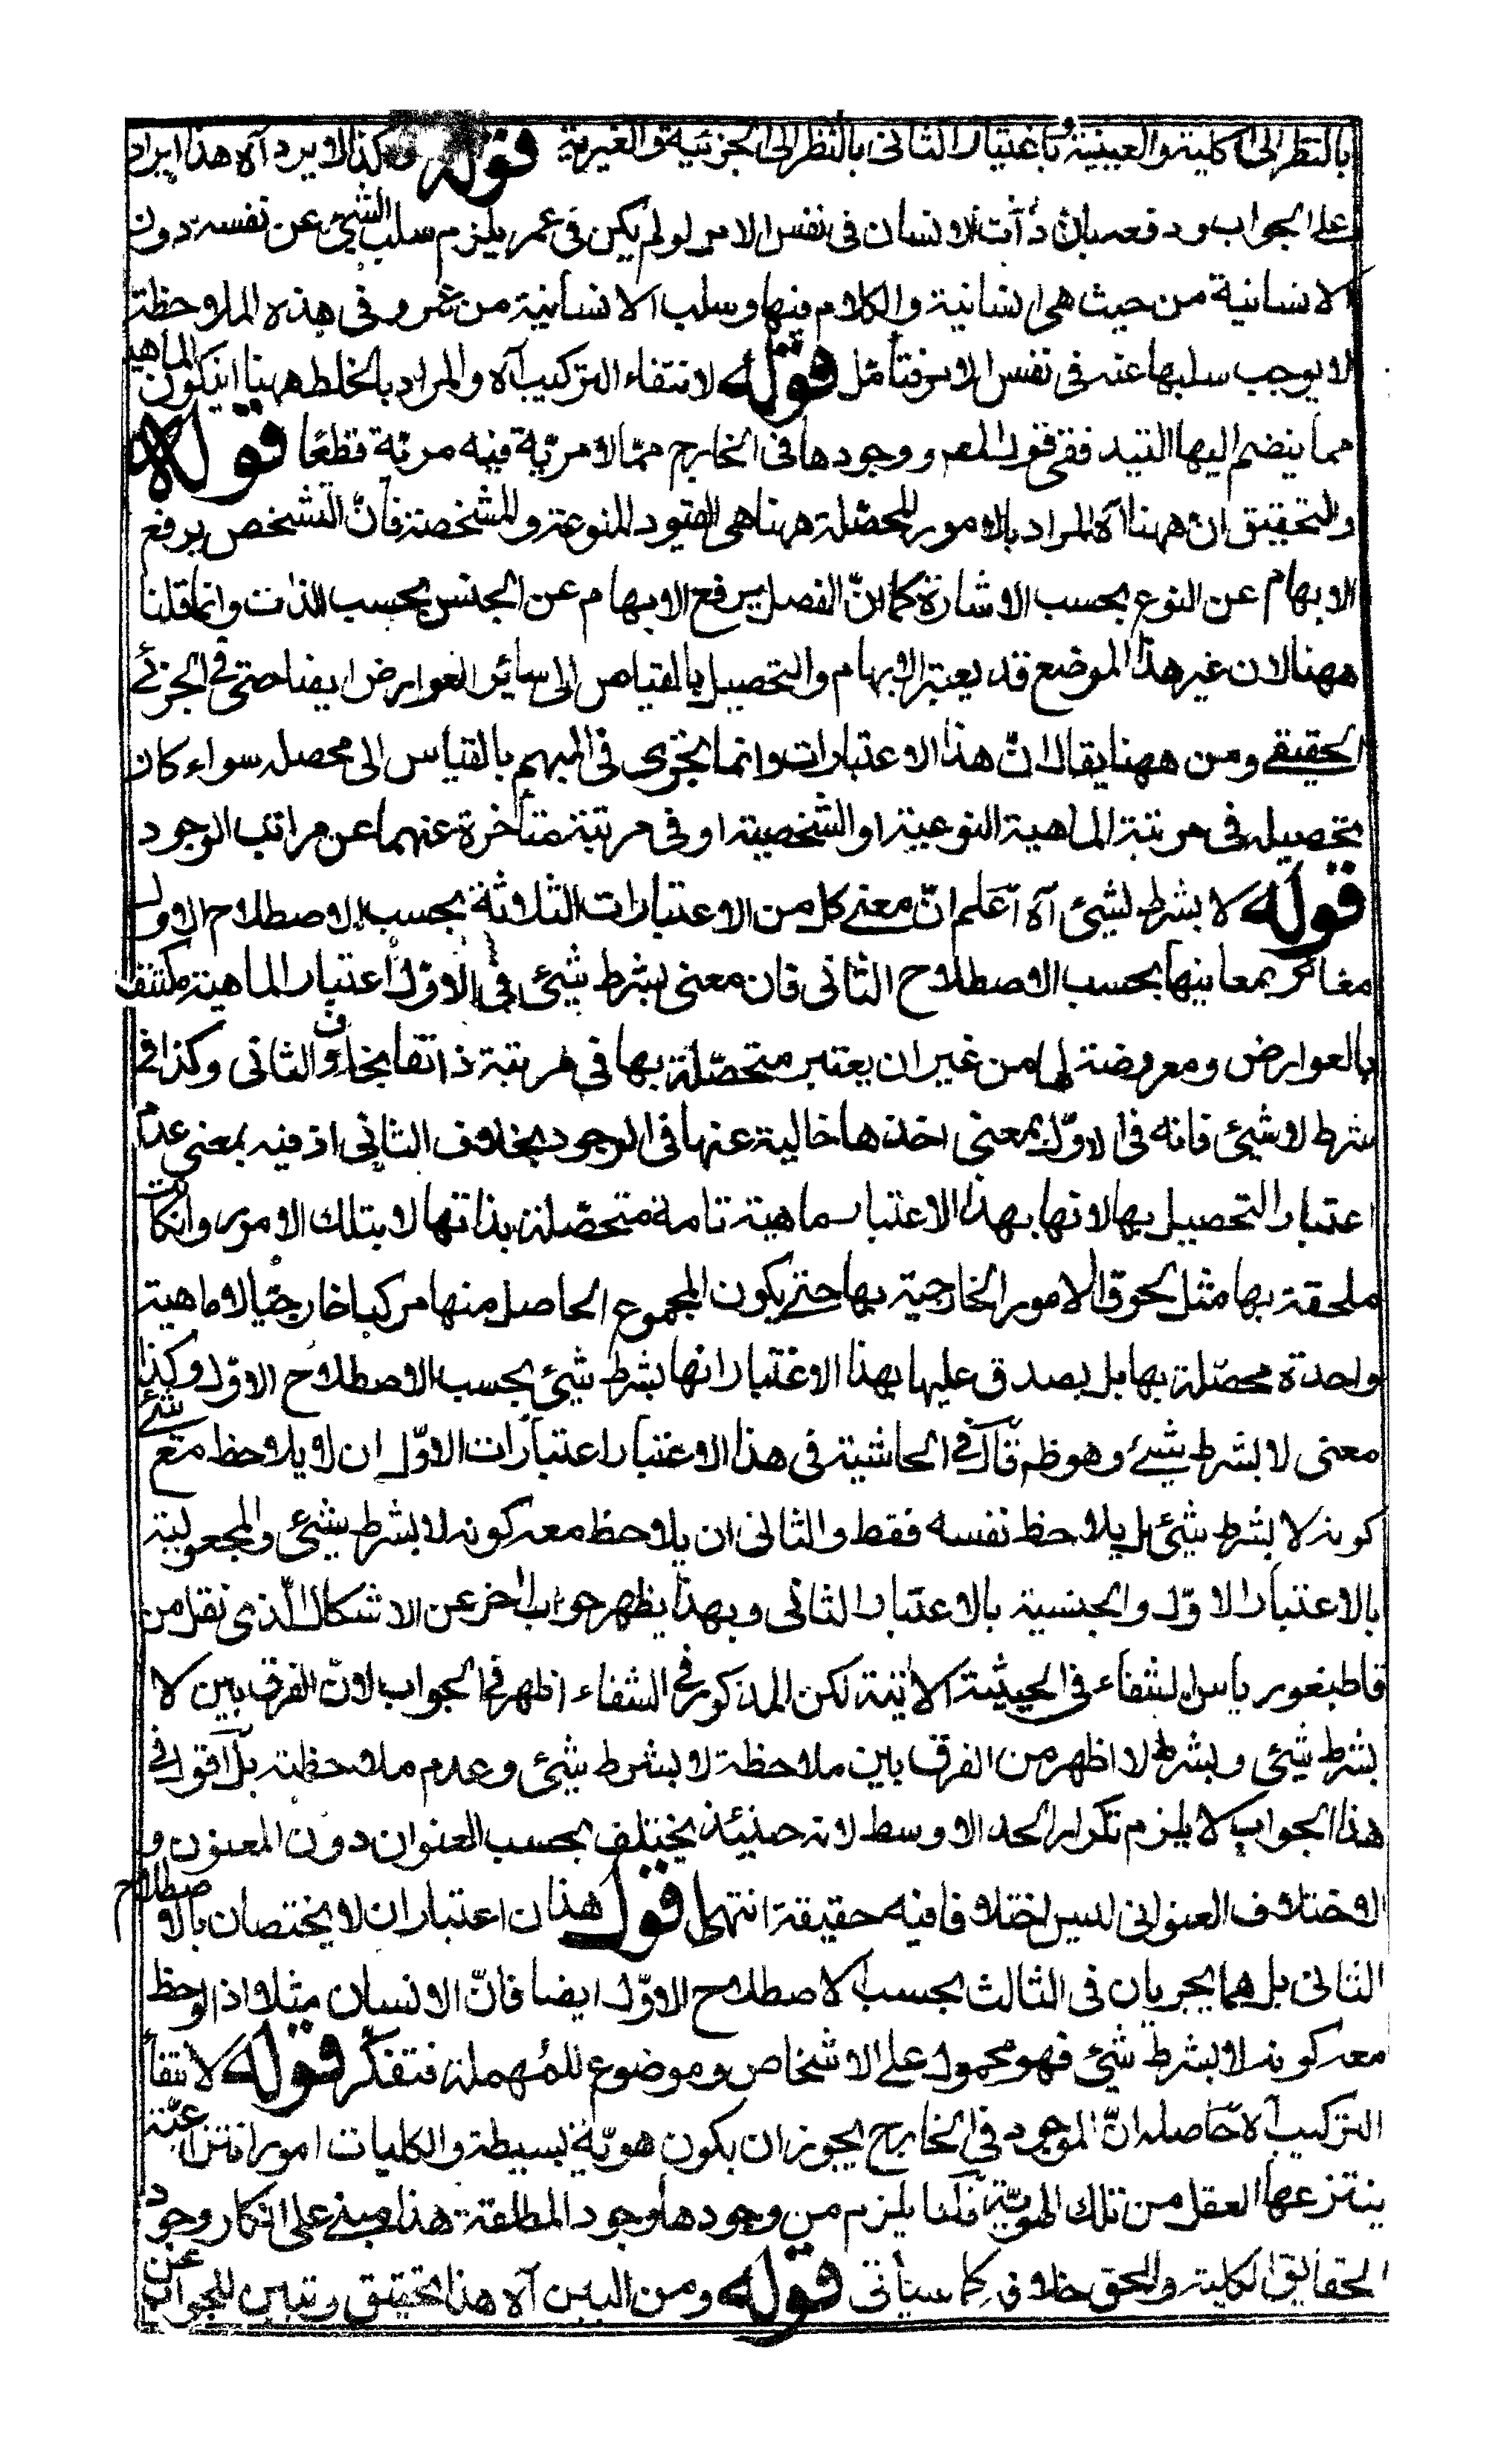 بالنظر الى الكلية والعينية وباعتبار الثانى بالنظر الى الجزئية والغيرية قوله وكذا لا يرد آه هذا ايراد
على الجواب ودفعه بان ذات الانسان فى نفس الامر لو لم يكن فى عمر يلزم سلب الشئ عن نفسه دون
الانسانية من حيث هى انسانية والكلام فيها وسلب الانسانية من عمرو فى هذه الملاحظة
لا يوجب سلبها عنه فى نفس الامر فتأمل قوله لانتفاء التركيب آه والمراد بالخلط ههنا ان يكون الماهية
مما ينضم اليها القيد ففى قول المصر ووجودها فى الخارج مما لا مرية فيه مرية قطعًا قوله
والتحقيق ان ههنا آه المراد بالامور المحصّلة ههنا هى القيود المنوعة والمشخصة فانّ التشخص يرفع
الابهام عن النوع بحسب الاشارة كما انّ الفصل يرفع الابهام عن الجنس بحسب الذات وانما قلنا
ههنا لان غير هذا الموضع قد يعتبر الابهام والتحصيل بالقياس الى سائر العوارض ايضا حتى فى الجزئے
الحقيقے ومن ههنا يقال انّ هذا الاعتبارات وانما تجرى فى المبهم بالقياس الى محصله سواء كان
تحصيله فى مرتبة الماهية النوعية او الشخصية او فى مرتبة متأخرة عنهما عن مراتب الوجود
قوله لا بشرط لشئ آه اعلم انّ معنے كل من الاعتبارات الثلاثة بحسب الاصطلاح الاول
مغائر بمعانيها بحسب الاصطلاح الثانى فان معنى بشرط شئ فى الاوّل اعتبار الماهية مكتنف
بالعوارض ومعروضة لها من غير ان يعتبر متحصّلة بها فى مرتبة ذاتها بخلاف الثانى وكذا فے
شرط لا شئ فانه فى الاوّل بمعنى اخذها خالية عنها فى الوجود بخلاف الثانى اذ فيه بمعنى عدم
اعتبار التحصيل بها لانها بهذا الاعتبار ماهية تامة متحصّلة بذاتها لا بتلك الامور وان كانت
ملحقة بها مثل لحوق الامور الخارجية بها حتے يكون المجموع الحاصل منها مركبا خارجيّا لا ماهية
واحدة محصّلة بها بل يصدق عليها بهذا الاعتبار انها بشرط شئ بحسب الاصطلاح الاوّل وكذا
معنى لا بشرط شئے وهو ظم قال فے الحاشية فى هذا الاعتبار اعتبارات الاوّل ان لا يلاحظ مع شئے
كونه لا بشرط شئ بل يلاحظ نفسه فقط والثانى ان يلاحظ معه كونه لا بشرط شئ والمجعولية
بالاعتبار الاوّل والجنسية بالاعتبار الثانى وبهذا يظهر جواب اخر عن الاشكال الّذى نقل من
قاطيغورياس الشفاء فى الحيثية الاتية لكن المذكور فے الشفاء اظهر فى الجواب لانّ الفرق بين لا
بشرط شئ وبشرط لا اظهر من الفرق بين ملاحظة لا بشرط شئ وعدم ملاحظته بل اقول فے
هذا الجواب لا يلزم تكرار الحد الاوسط لانه حينئذ يختلف بحسب العنوان دون المعنون و
الاختلاف العنوانى ليس اختلافا فيه حقيقة انتهى قوله هذان اعتباران لا يختصان بالاصطلاح
الثانى بل هما يجريان فى الثالث بحسب الاصطلاح الاوّل ايضا فانّ الانسان مثلا اذا لوحظ
معه كونه لا بشرط شئ فهو محمول على الاشخاص وموضوع للمُهملة فتفكّر قوله لانتفأ
التركيب آه حاصله انّ الموجود فى الخارج يجوز ان يكون هويّة بسيطة والكليات امورا انتزاعيّة
ينتزعها العقل من تلك الهويّة فلما يلزم من وجودها وجود المطلقة هذا مبنے على انكار وجود
الحقائق الكلية والحق خلافه كما سيأتى قوله ومن البين آه هذا تحقيق وتبين للجواب عن